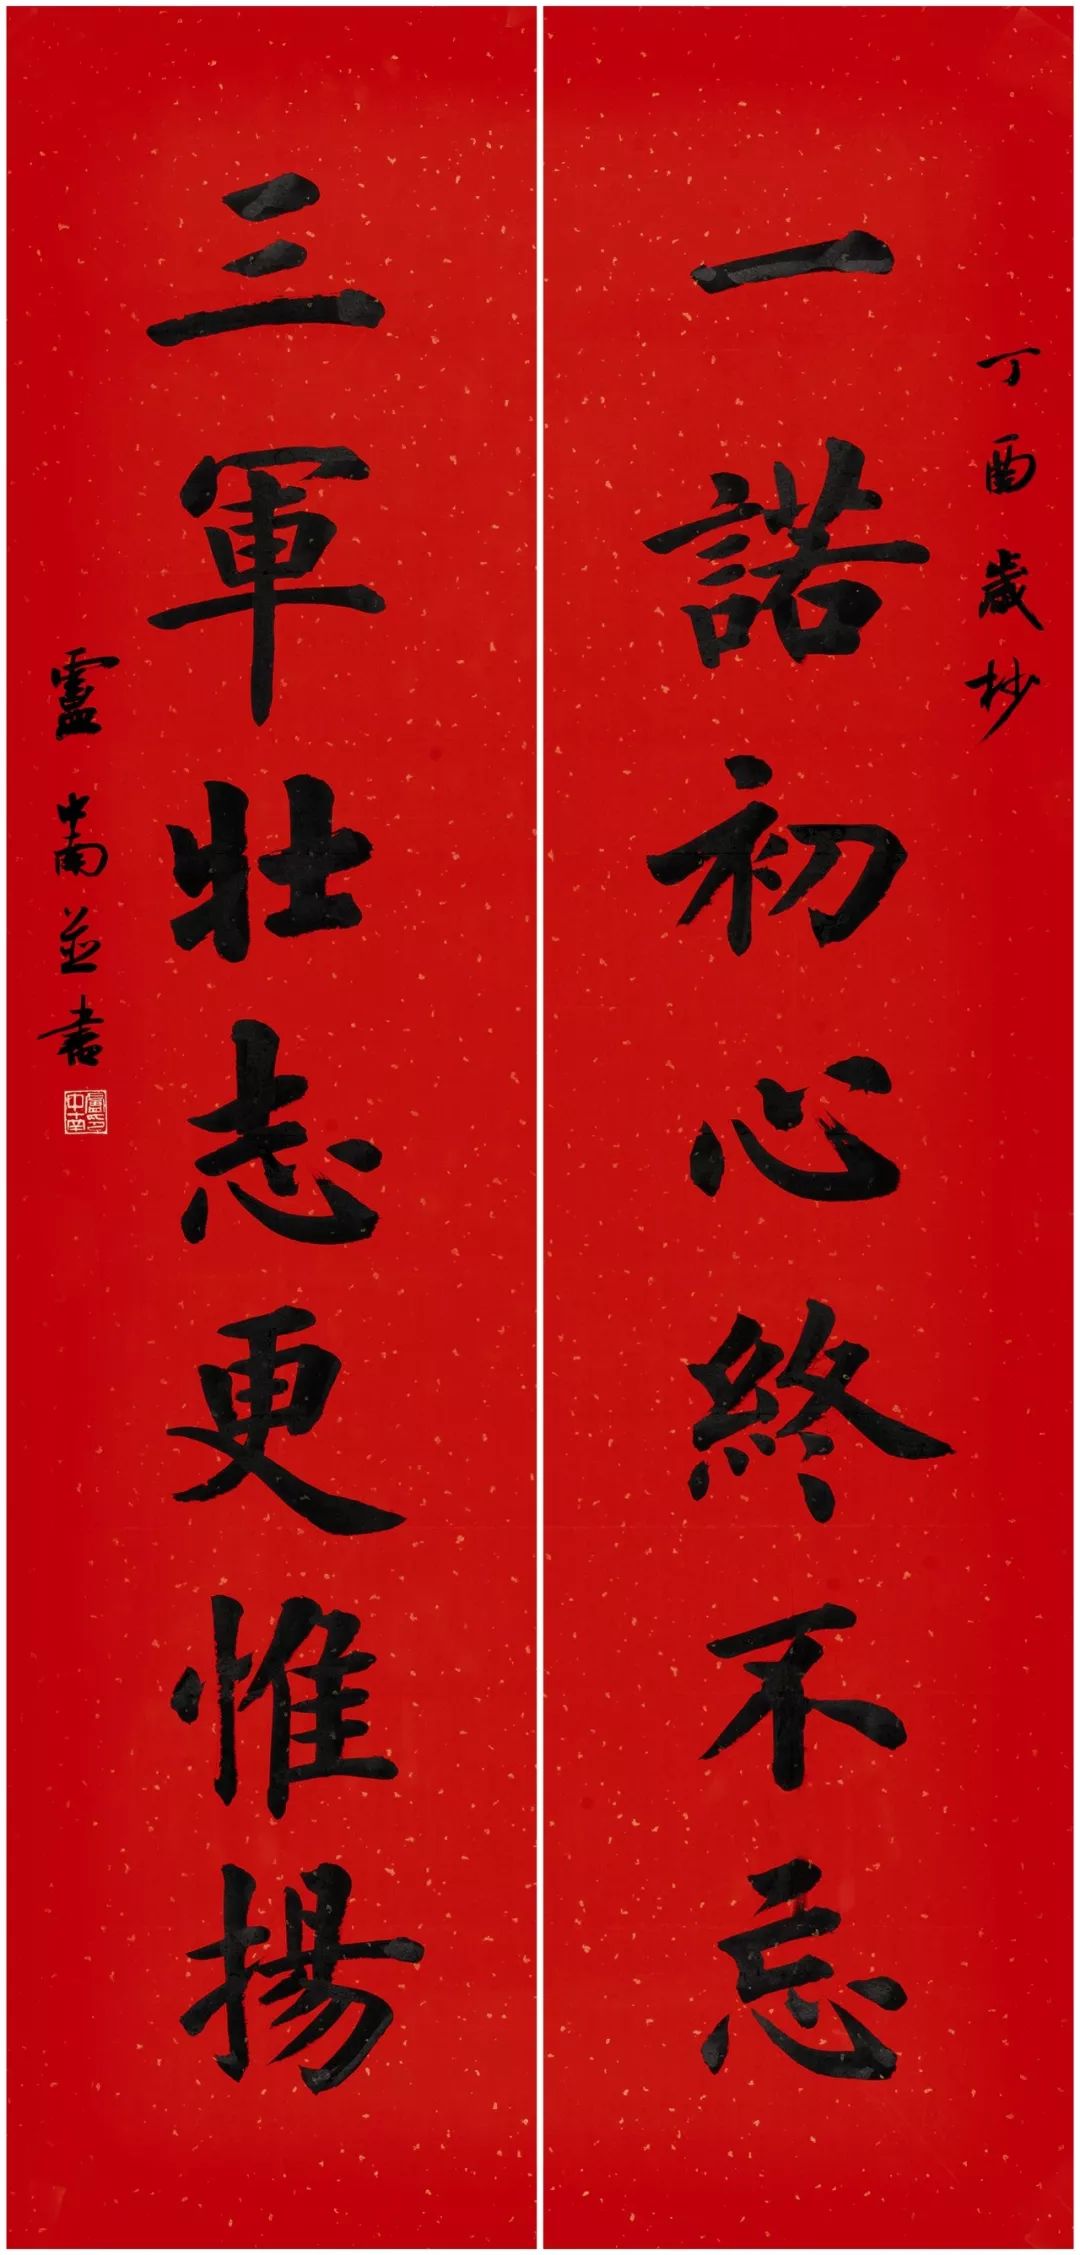 丁酉歲杪
一諾初心終不忘
三軍壯志更惟揚
盧中南並書
盧中南印